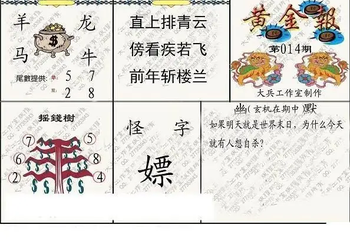 羊 龙
马 牛
尾數提供: 5 7
2 8
直上排青云
傍看疾若飞
前年斩楼兰
黄金報
第014期
大兵工作室制作
摇錢樹
7 5
2 8
4
怪 字
嫖
幽(玄机在期中)默
如果明天就是世界末日，为什么今天
就有人想自杀?